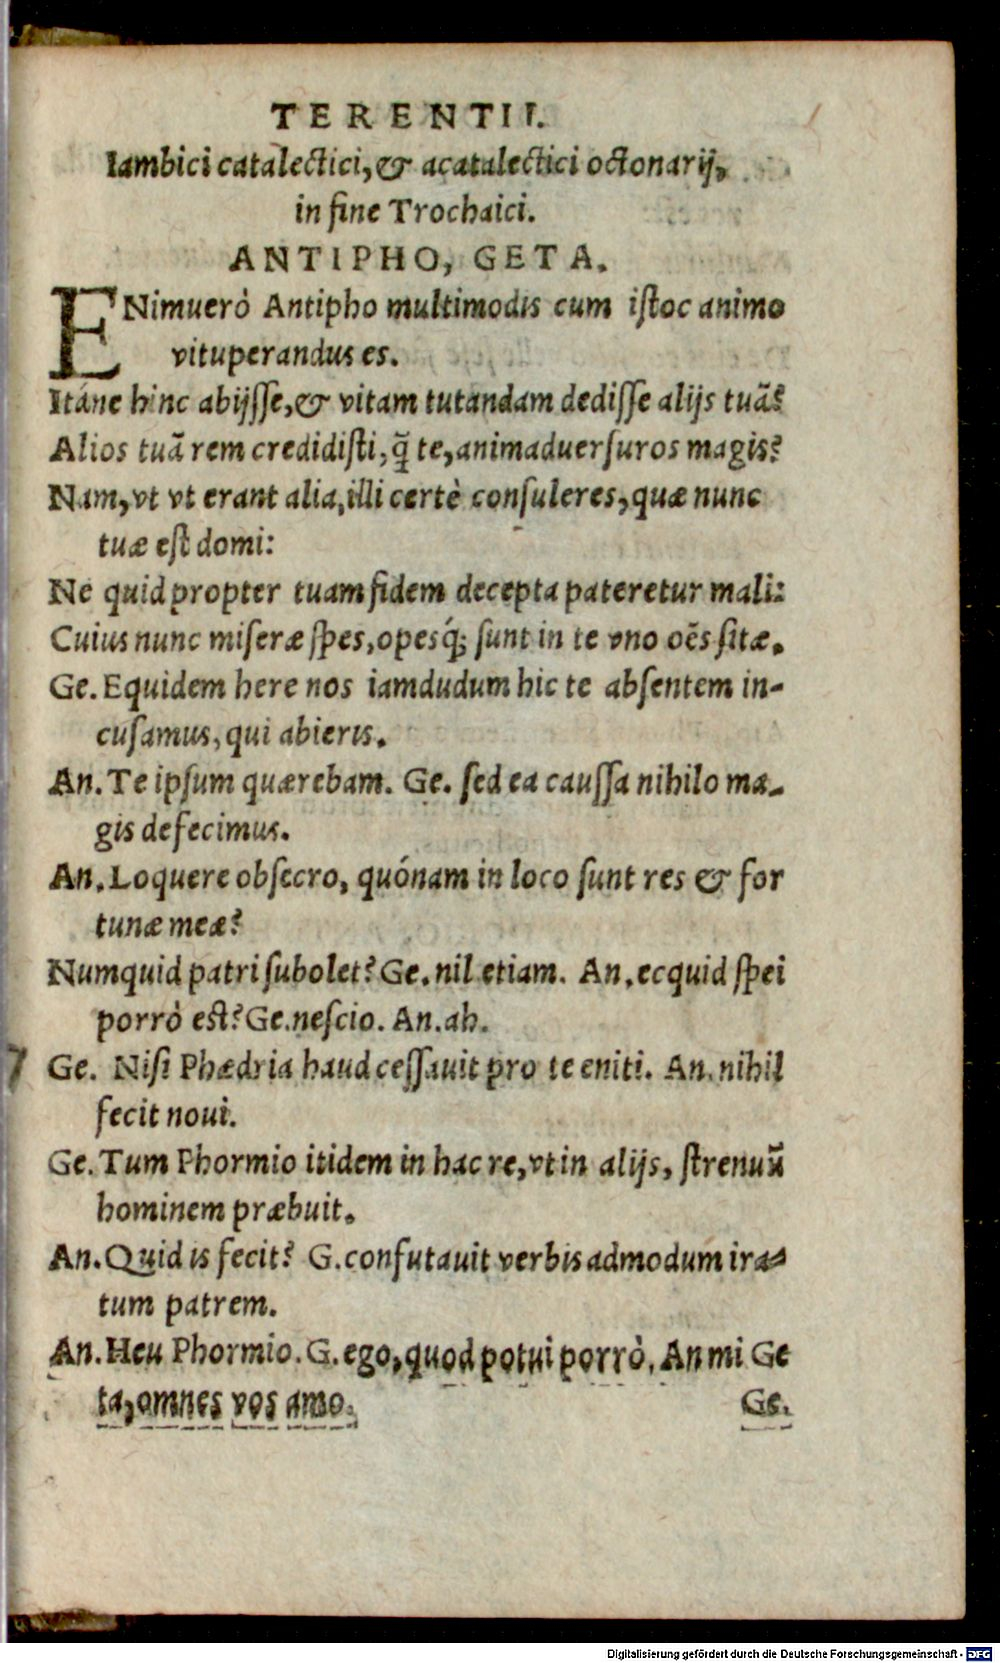 TERENTII.
Iambici catalectici, & acatalectici octonarij,
in fine Trochaici.
ANTIPHO, GETA.
ENimuerò Antipho multimodis cum istoc animo
vituperandus es.
Itáne hinc abijsse, & vitam tutandam dedisse alijs tuã?
Alios tuã rem credidisti, q̃ te, animaduersuros magis?
Nam, vt vt erant alia, illi certè consuleres, quæ nunc
tuæ est domi:
Ne quid propter tuam fidem decepta pateretur mali:
Cuius nunc miseræ spes, opesq́; sunt in te vno oẽs sitæ.
Ge. Equidem here nos iamdudum hic te absentem in-
cusamus, qui abieris.
An. Te ipsum quærebam. Ge. sed ea caussa nihilo ma-
gis defecimus.
An. Loquere obsecro, quónam in loco sunt res & for
tunæ meæ?
Numquid patri subolet? Ge. nil etiam. An. ecquid spei
porrò est? Ge. nescio. An. ah.
Ge. Nisi Phædria haud cessauit pro te eniti. An. nihil
fecit noui.
Ge. Tum Phormio itidem in hac re, vt in alijs, strenuũ
hominem præbuit.
An. Quid is fecit? G. confutauit verbis admodum ira-
tum patrem.
An. Heu Phormio. G. ego, quod potui porrò. An mi Ge
ta, omnes vos amo.
Ge.
Digitalisierung gefördert durch die Deutsche Forschungsgemeinschaft - DFG